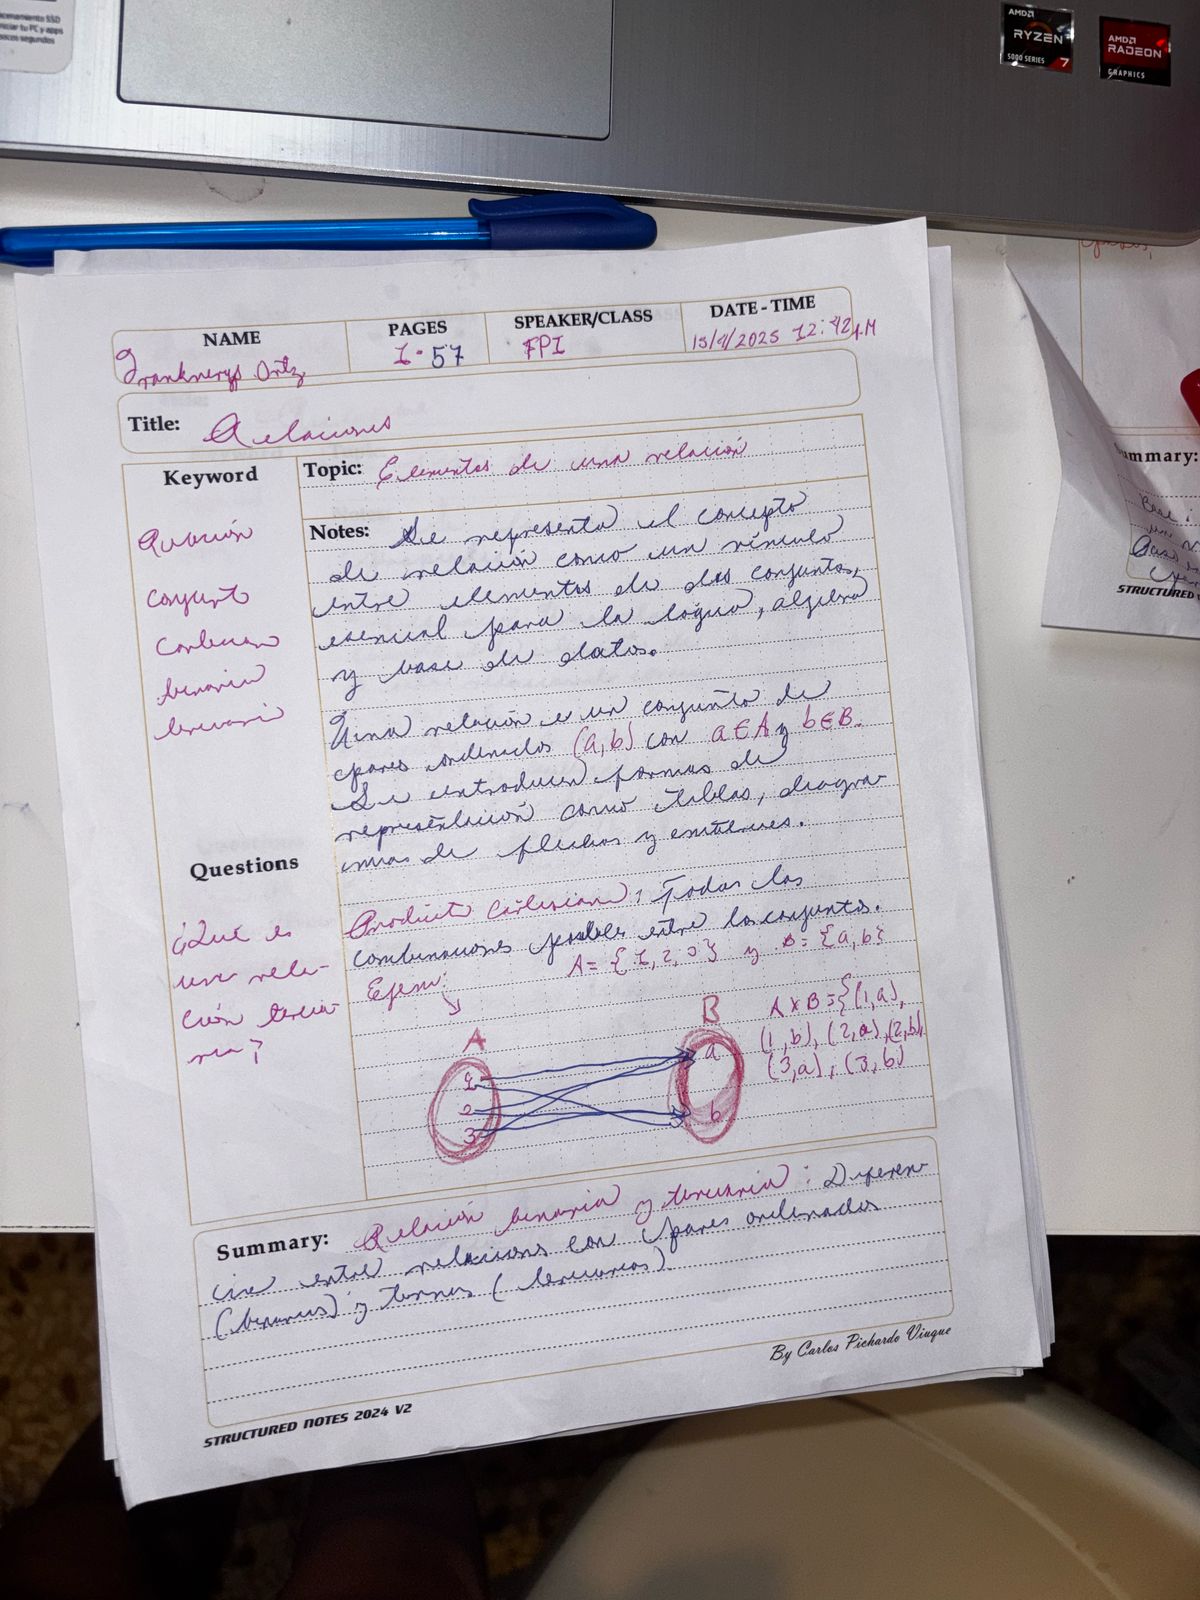 AMD
RYZEN
5000 SERIES 7
AMD
RADEON
GRAPHICS
NAME
PAGES
SPEAKER/CLASS
DATE - TIME
Franknerys Ortiz
1-57
FPI
12:42 AM
Title: Relaciones
Keyword
Topic: Elementos de una relación
Notes: Se representa el concepto
de relación como un vínculo
entre elementos de dos conjuntos,
esencial para la lógica, algebra
y base de datos.
conjunto
binaria
Una relación e un conjunto de
pares ordenados (a,b) con a∈A y b∈B.
Se introducen formas de
representación como tablas, diagra-
mas de flechas y
Questions
¿Qué es
una rela-
ción tercia-
ria?
Producto Cartesiano: Todas las
combinaciones posibles entre los conjuntos.
Ejem: A= {1, 2, 3} y B= {a, b}
A
B
A x B={(1,a),
(1,b), (2,a),(2,b),
(3,a), (3,b)
1
2
3
a
b
Summary: Relación binaria y terciaria: Diferen-
cia entre relaciones con pares ordenados
(binarias) y ternas (terciarias)
By Carlos Pichardo Viuque
STRUCTURED NOTES 2024 V2
Summary:
STRUCTURED